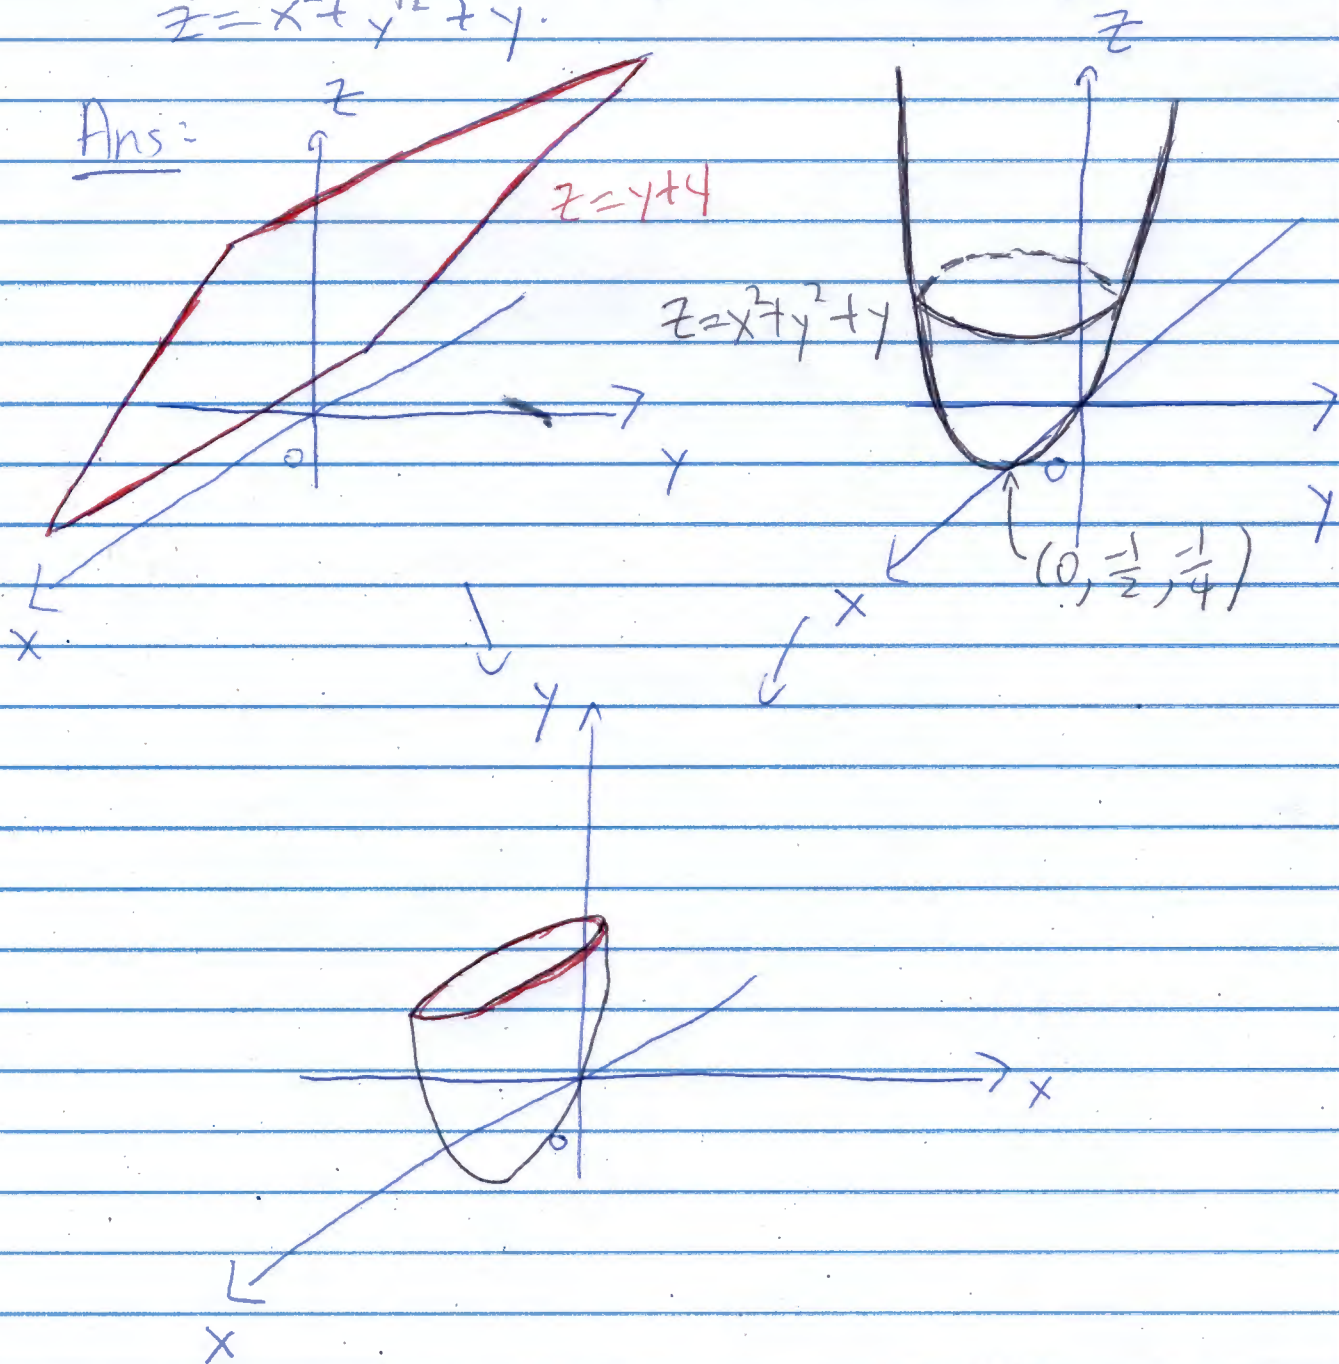 z = x² + y² + y.
Ans:
z
z = y+4
O
y
x
z
z = x² + y² + y
O
y
(0, -1/2, -1/4)
x
y
x
O
x